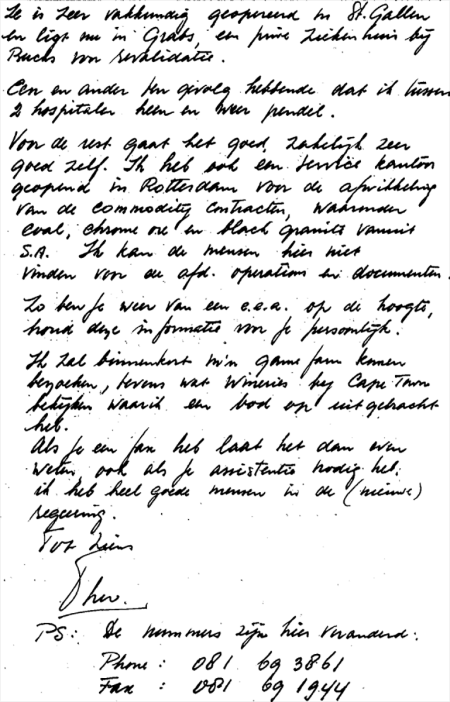 Ze is zeer vakkundig geopereerd in St. Gallen
en ligt nu in Grabs, een privé ziekenhuis bij
Buchs voor revalidatie.
Een en ander ten gevolg hebbende dat ik tussen
2 hospitalen heen en weer pendel.
Voor de rest gaat het goed, zakelijk zeer
goed zelf. Ik heb ook een service kantoor
geopend in Rotterdam voor de afwikkeling
van de commodity contracten, waaronder
coal, chrome ore en black granite vanuit
S.A. Ik kan de mensen hier niet
vinden voor de afd. operations en documenten.
Zo ben je weer van een e.e.a. op de hoogte,
houd deze informatie voor je persoonlijk.
Ik zal binnenkort m'n game farm komen
bezoeken, tevens wat wineries bij Cape Town
bekijken waarik een bod op uitgebracht
heb.
Als je een fax heb laat het dan even
weten, ook als je assistentie nodig heb.
ik heb heel goede mensen in de (nieuwe)
regeering.
Tot ziens
Theo.
PS: De nummers zijn hier veranderd:
Phone: 081 69 3861
Fax : 081 69 1944